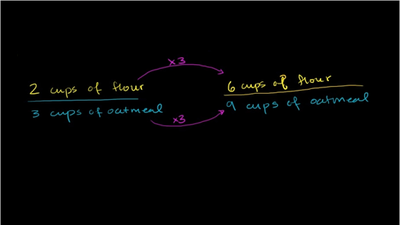 ×3
2 cups of flour
3 cups of oatmeal
×3
6 cups of flour
9 cups of oatmeal